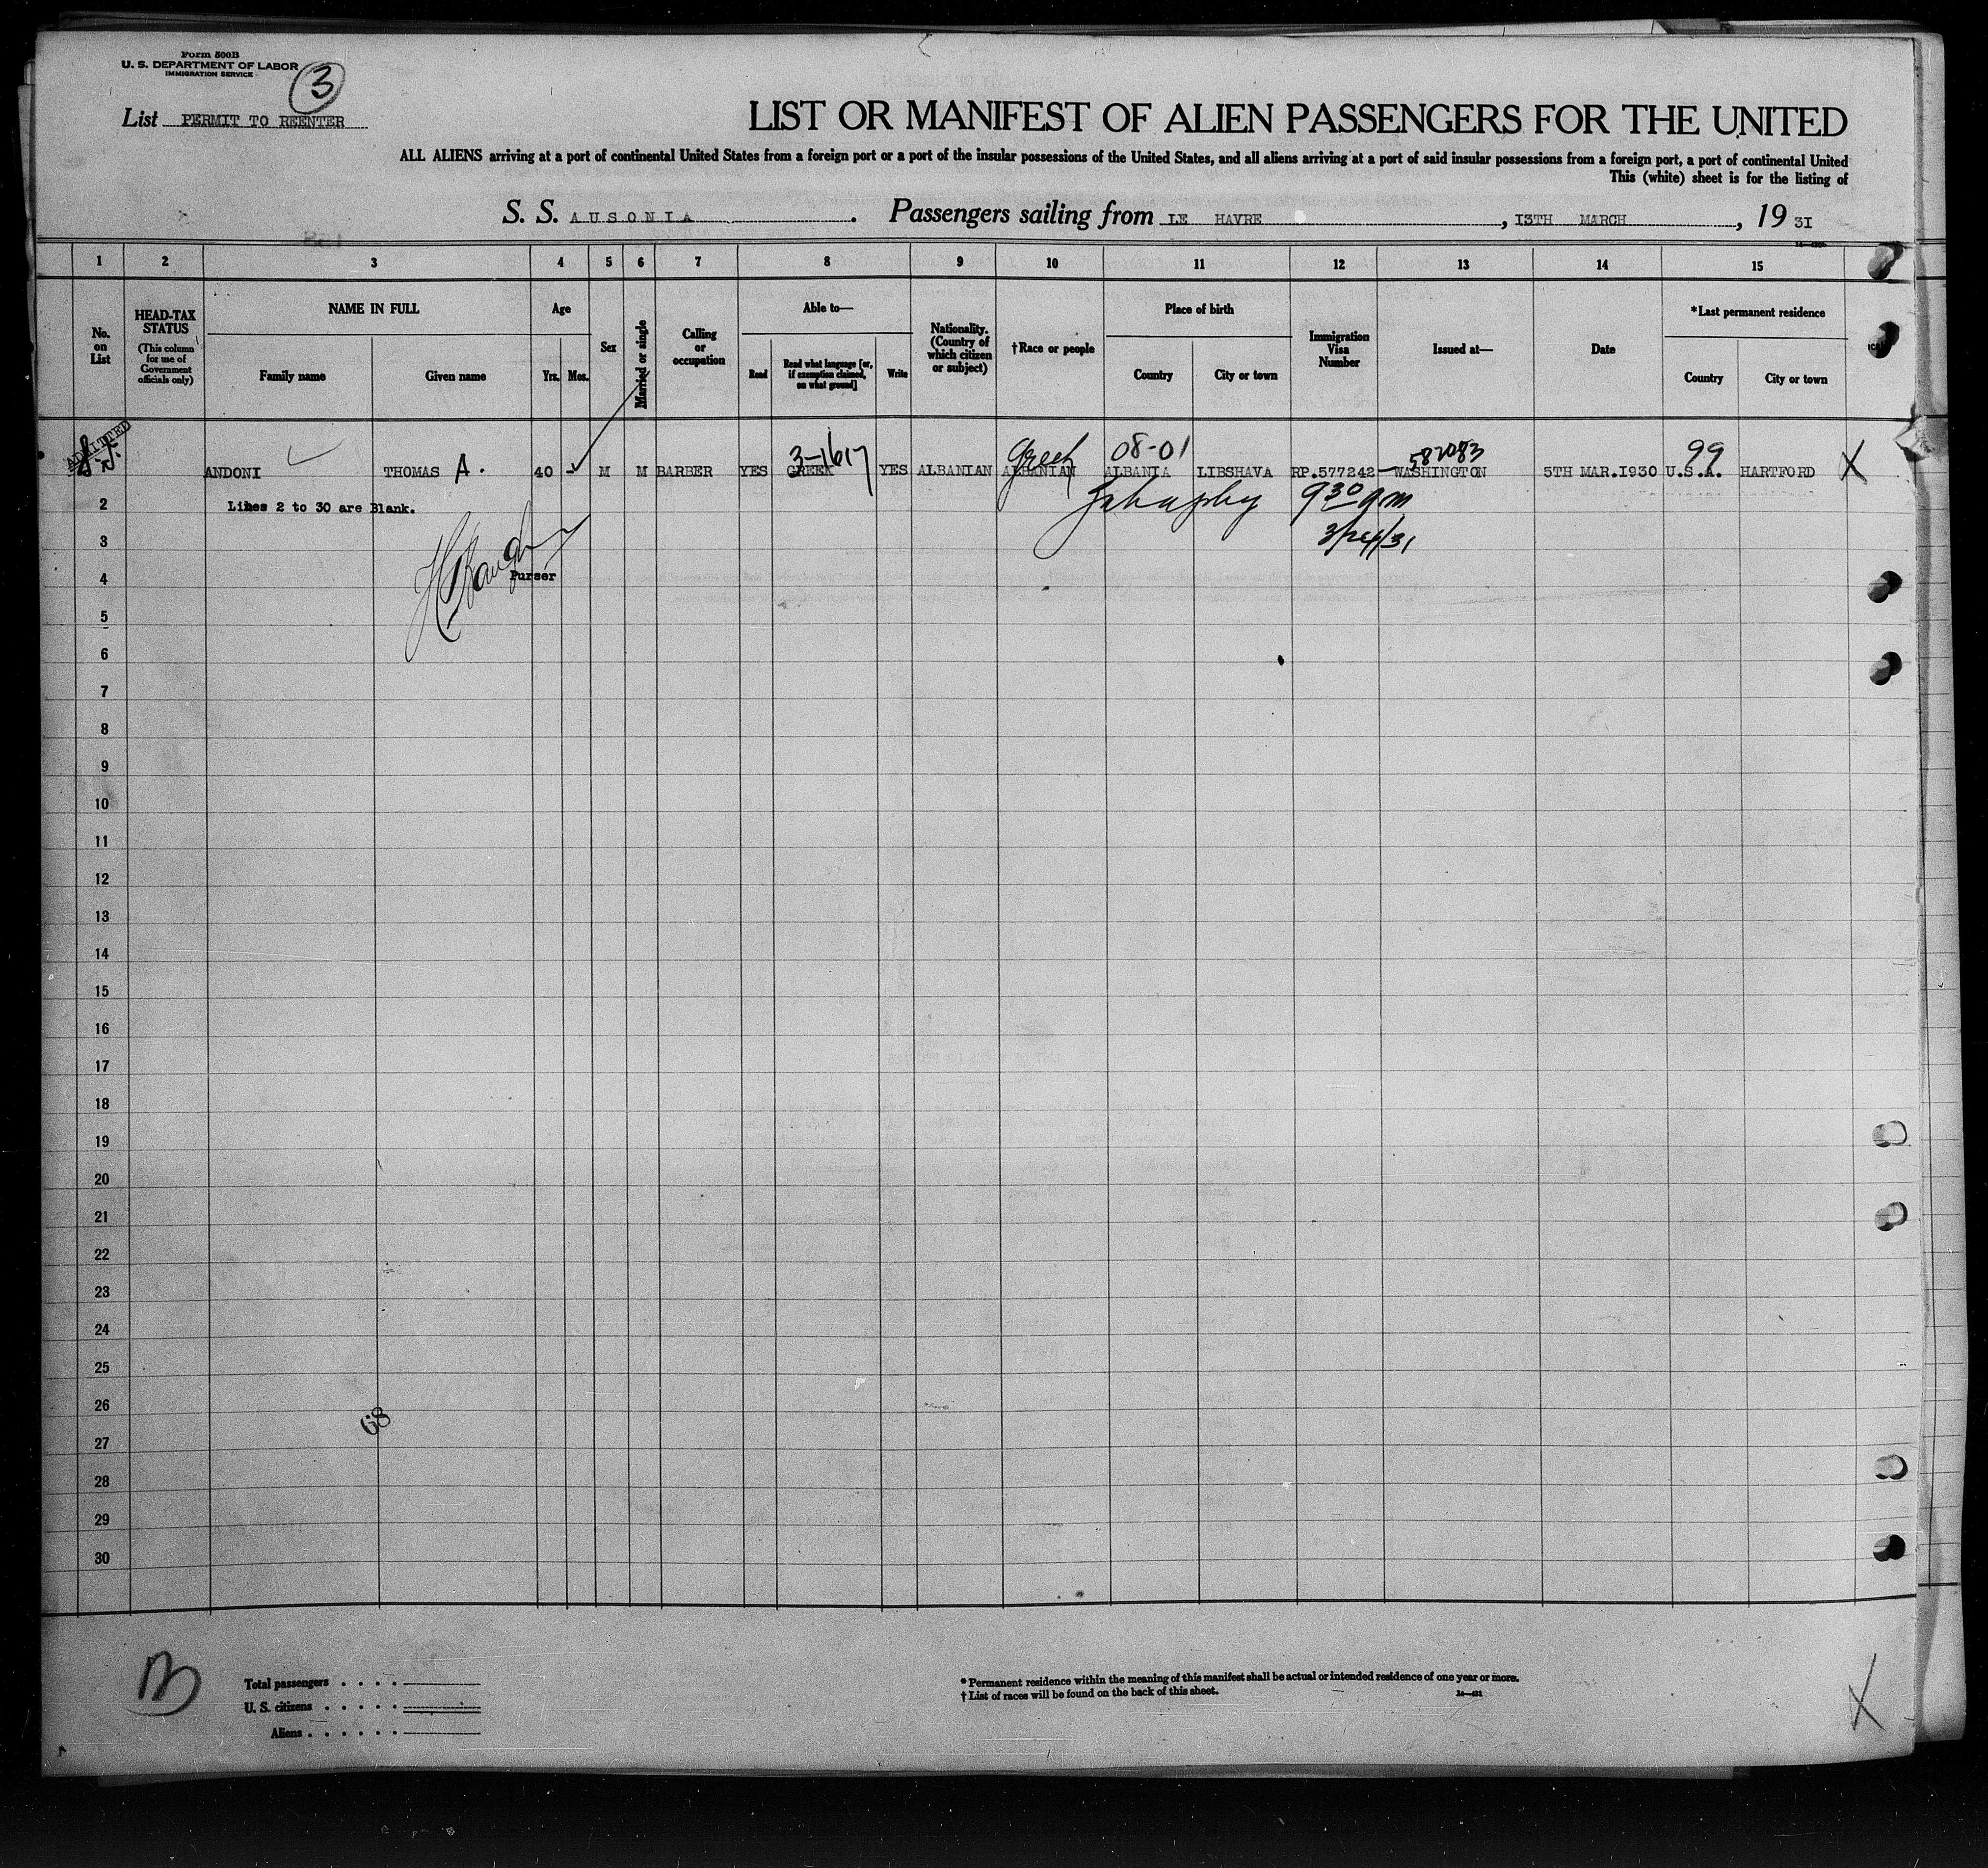 Form 500B
U. S. DEPARTMENT OF LABOR
IMMIGRATION SERVICE
3
List PERMIT TO REENTER
LIST OR MANIFEST OF ALIEN PASSENGERS FOR THE UNITED
ALL ALIENS arriving at a port of continental United States from a foreign port or a port of the insular possessions of the United States, and all aliens arriving at a port of said insular possessions from a foreign port, a port of continental United
This (white) sheet is for the listing of
S. S. AUSONIA. Passengers sailing from LE HAVRE, 13TH MARCH, 19 31
1 2 3 4 5 6 7 8 9 10 11 12 13 14 15
No. on List
HEAD-TAX STATUS
(This column for use of Government officials only)
NAME IN FULL
Family name
Given name
Age
Yrs. Mos.
Sex
Married or single
Calling or occupation
Able to—
Read
Read what language [or, if exemption claimed, on what ground]
Write
Nationality. (Country of which citizen or subject)
†Race or people
Place of birth
Country
City or town
Immigration Visa Number
Issued at—
Date
*Last permanent residence
Country
City or town
ADMITTED
3-1617 Greek 08-01 582083 99
ANDONI THOMAS A. 40 - M M BARBER YES GREEK YES ALBANIAN ALBANIAN ALBANIA LIBSHAVA RP.577242- WASHINGTON 5TH MAR.1930 U.S.A. HARTFORD X
2 Lines 2 to 30 are Blank. 9 30 am
3 3/24/31
4 Purser
5
6
7
8
9
10
11
12
13
14
15
16
17
18
19
20
21
22
23
24
25
26
68
27
28
29
30
Total passengers . . . .
U. S. citizens . . . . .
Aliens . . . . . .
* Permanent residence within the meaning of this manifest shall be actual or intended residence of one year or more.
† List of races will be found on the back of this sheet.
X